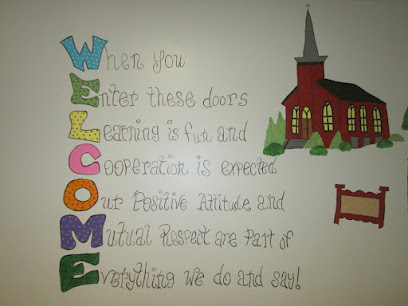 When you
Enter these doors
Learning is fun and
Cooperation is expected
Our Positive Attitude and
Mutual Respect are Part of
Everything we do and say!